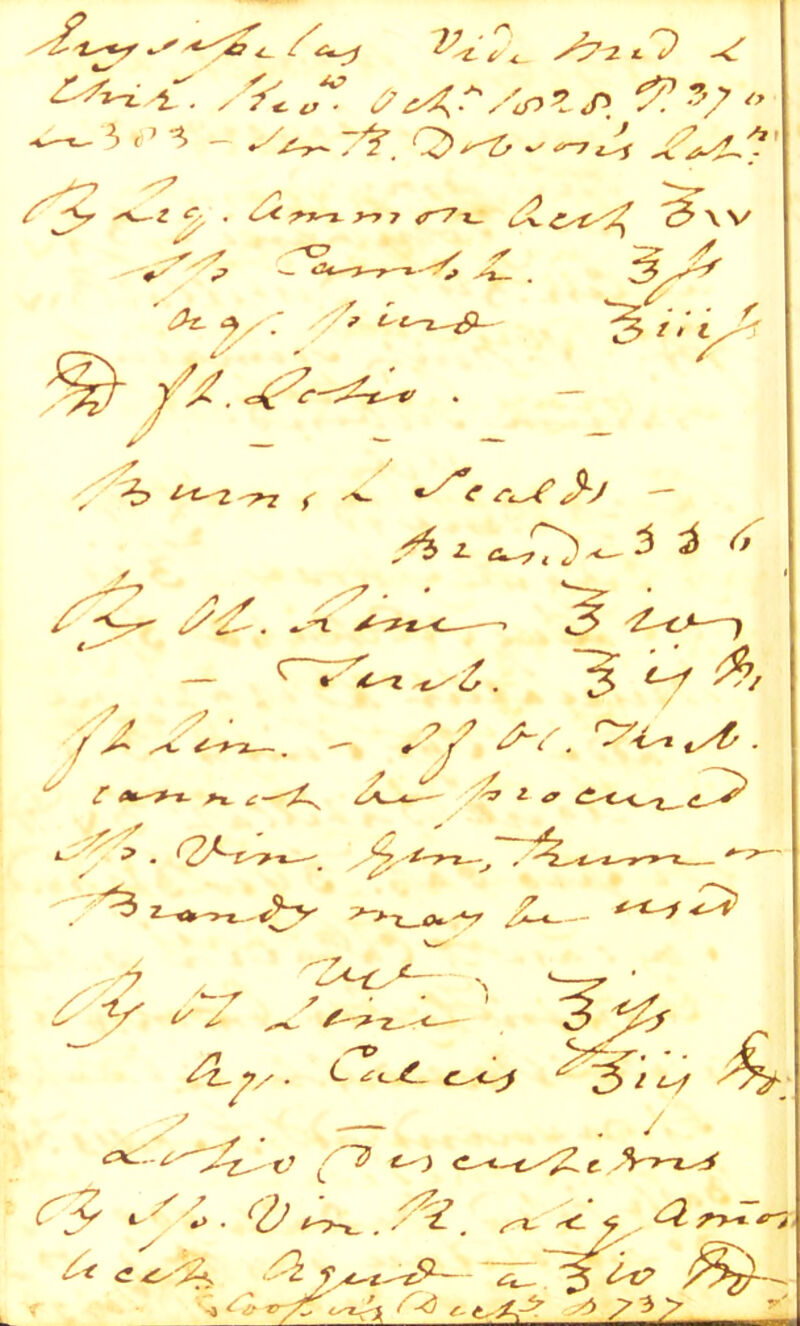 Erysipelas Vide Med &
Chir. Revw. Octr. 1828, P. 37
383 - Sir R. Dobson's Lotn.
℞ Liq. Ammon Acet ℥iv
Sp Camph. ℥fs
aq. puræ ℥iiifs
ft. Lotio. -
Burns & Scalds -
Brande 336
℞ Ol. Lini ℥iv
- Tereb. ℥ij M
ft Lin. - If Ol. Tereb.
cannot be procured
Sp. Vin. Gin, Rum or
Brandy may be used
vel
℞ Ol Lini ℥ijfs
Aq. Calcis ℥iij
Lotio Discutiens
℞ Sp. Vin. R. Liq Amon
Acet. Aquæ a ℥iv
Cooper's Dicty. P737